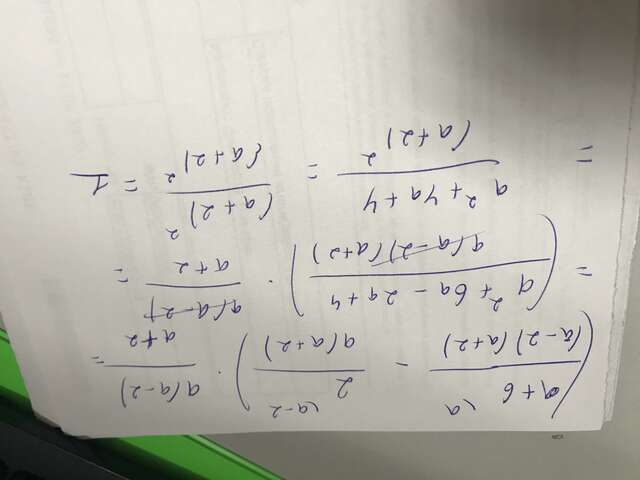 ( (a+6)/((a-2)(a+2)) \a - 2/(a(a+2)) \a-2 ) · (a(a-2))/(a+2) =
= ( (a²+6a-2a+4)/(a(a-2)(a+2)) ) · (a(a-2))/(a+2) =
= (a²+4a+4)/((a+2)²) = ((a+2)²)/((a+2)²) = 1